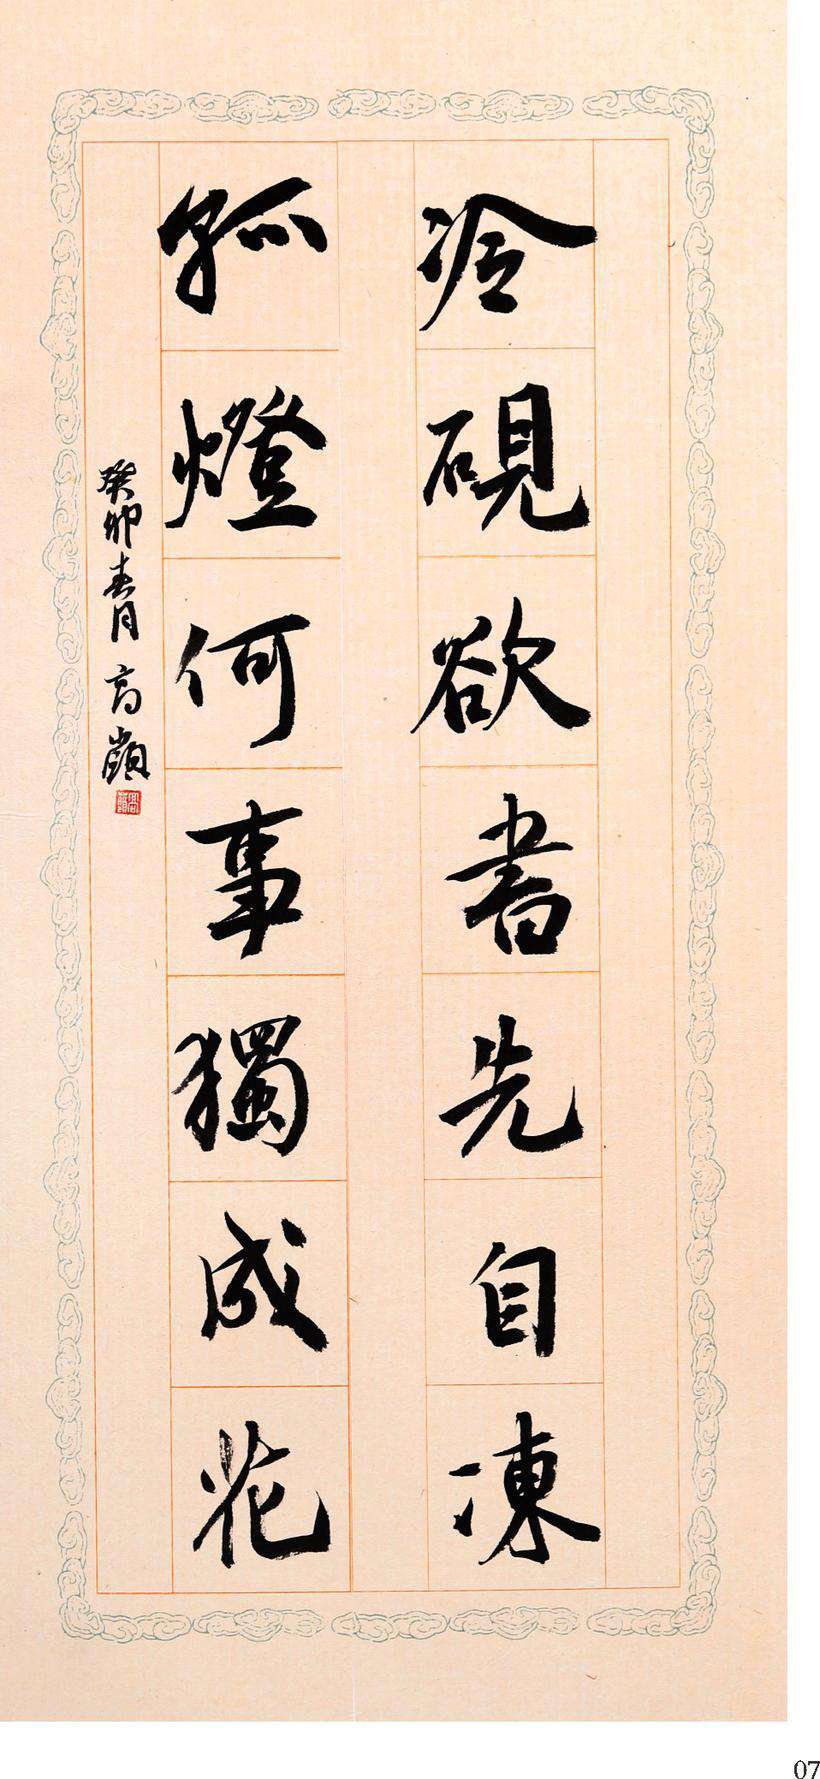 冷硯欲書先自凍
孤燈何事獨成花
癸卯春月 高嶺
07